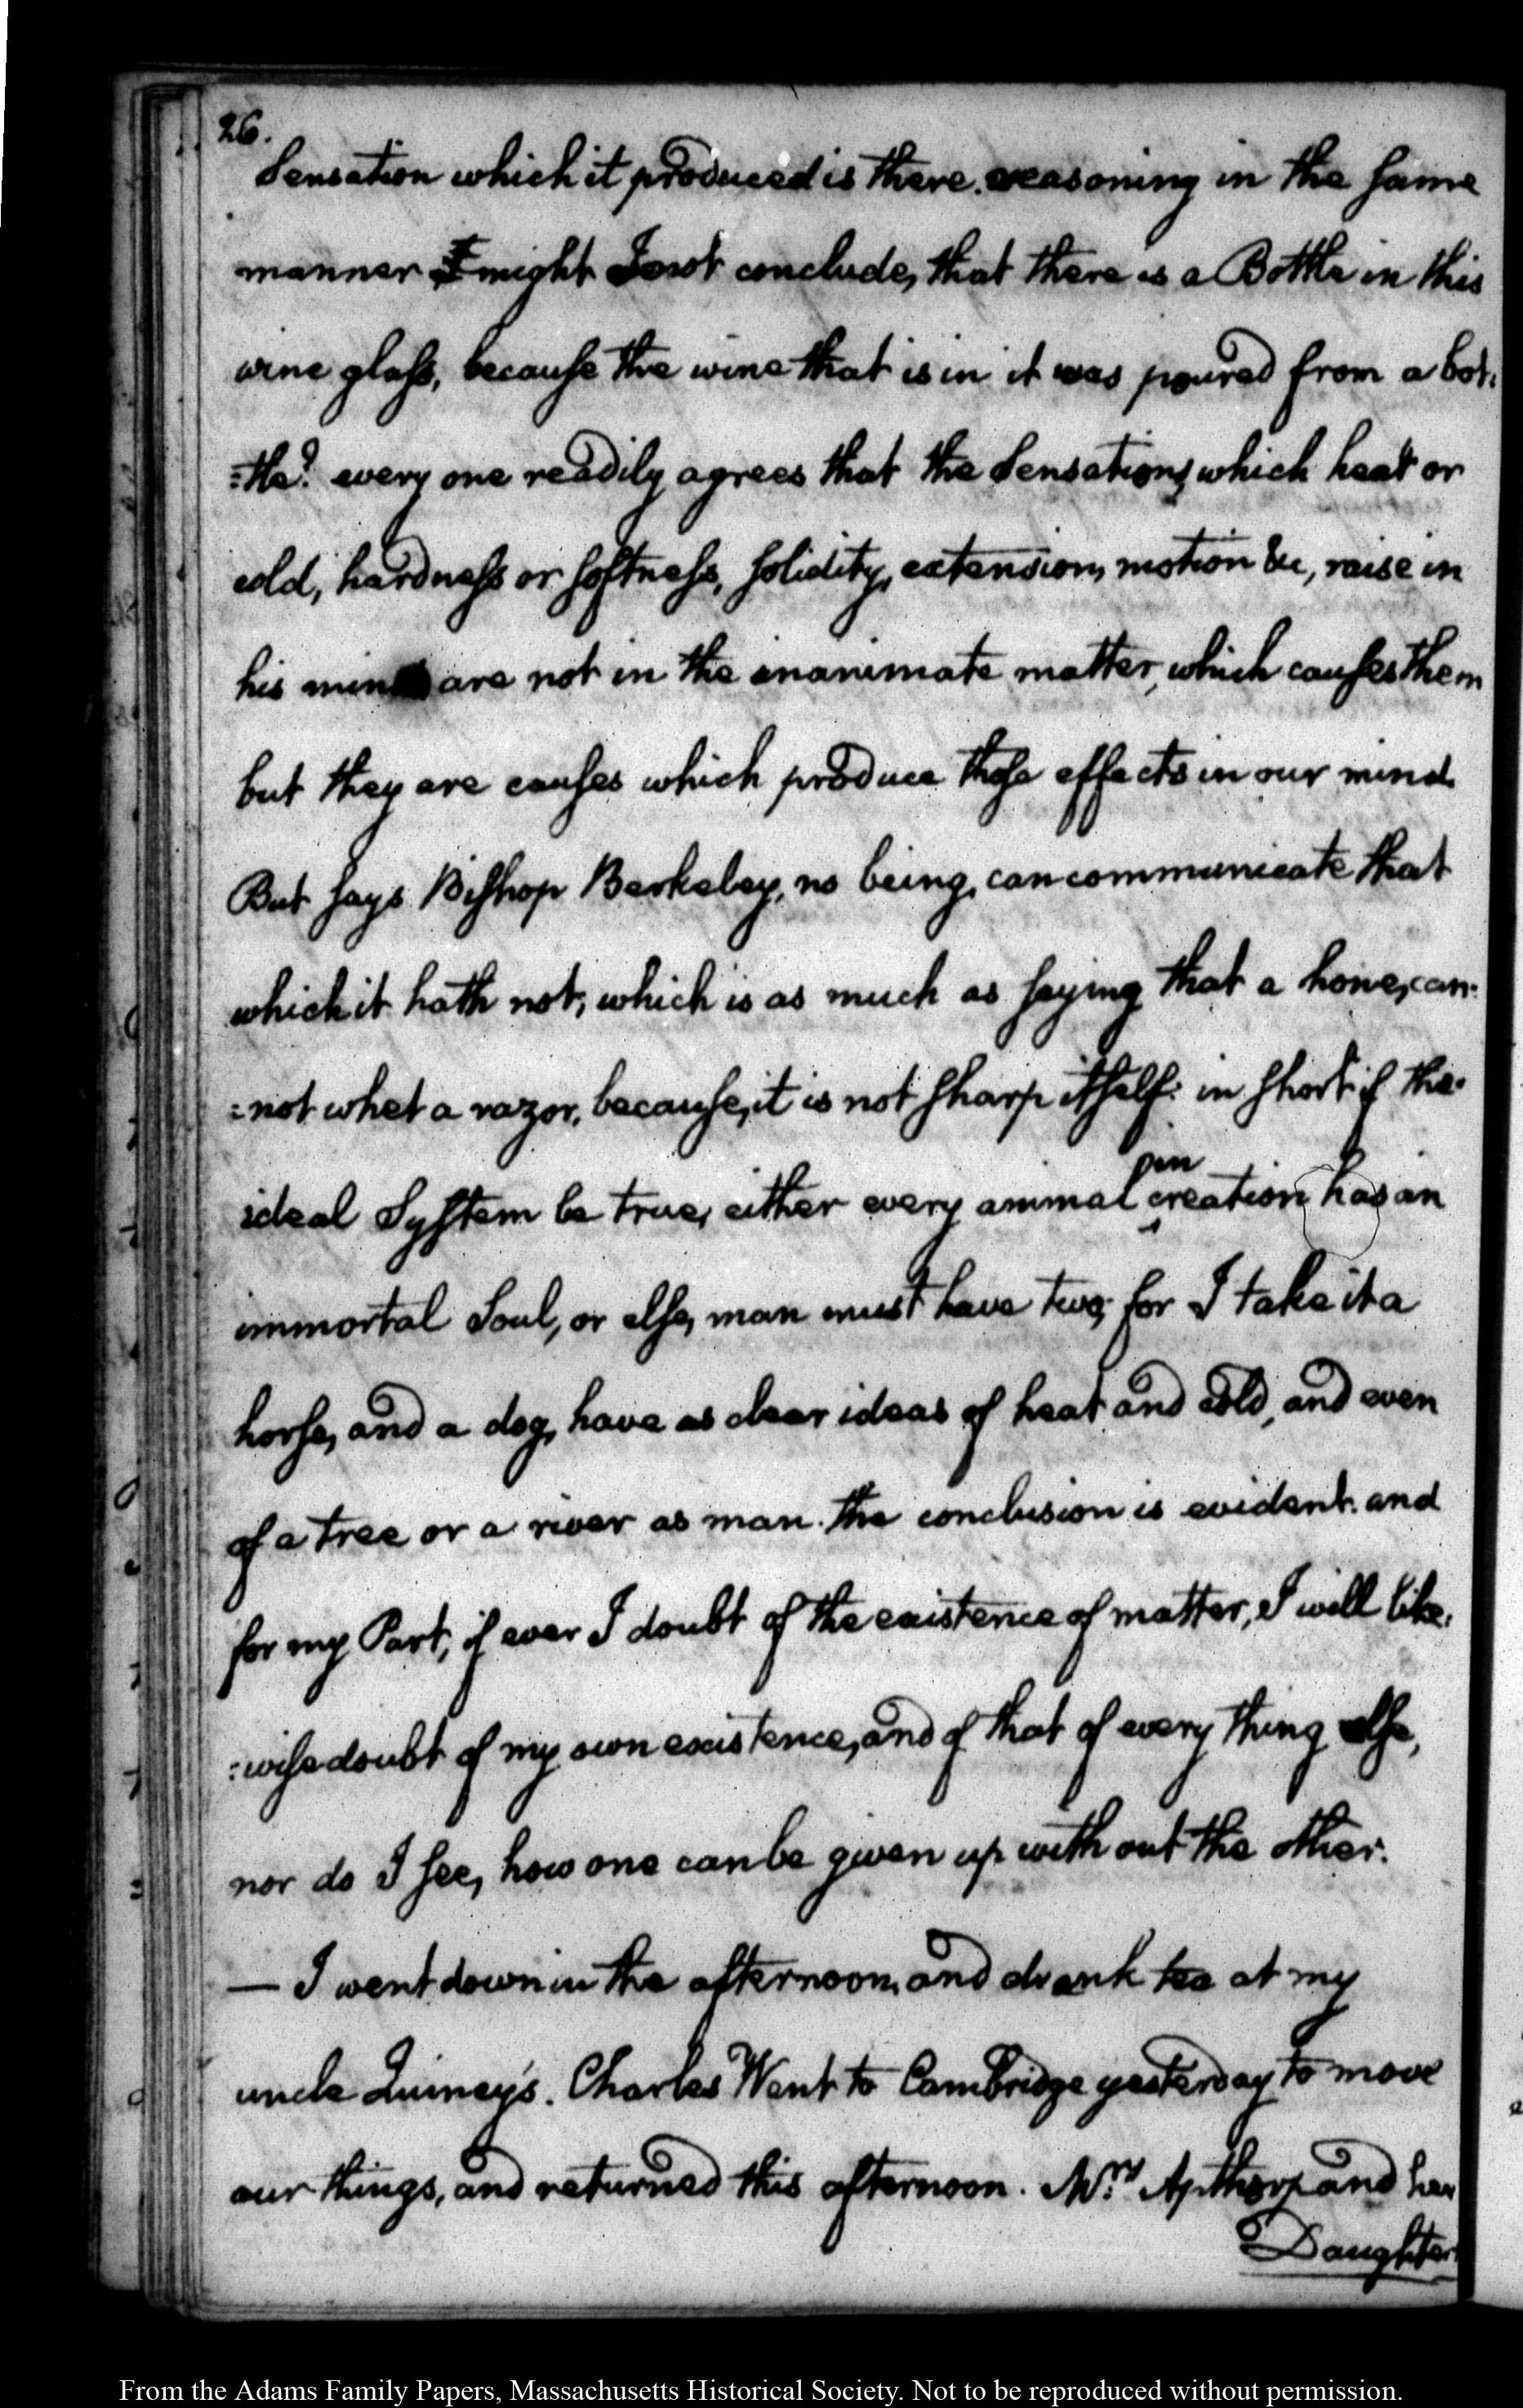 26.
Sensation which it produced is there. reasoning in the same
manner I might I not conclude, that there is a Bottle in this
wine glass, because the wine that is in it was poured from a bot-
:tle? every one readily agrees that the Sensations, which heat or
cold, hardness or softness, solidity, extension, motion &c, raise in
his mind are not in the inanimate matter, which causes them
but they are causes which produce those effects in our mind.
But says Bishop Berkeley, no being, can communicate that
which it hath not, which is as much as saying that a hone, can-
:not whet a razor, because, it is not sharp itself: in short if the
ideal System be true, either every animal in creation has an
immortal Soul, or else, man must have two; for I take it a
horse, and a dog, have as clear ideas of heat and cold, and even
of a tree or a river as man. The conclusion is evident. and
for my Part, if ever I doubt of the existence of matter, I will like-
:wise doubt of my own existence, and of that of every thing else,
nor do I see, how one can be given up with out the other.
— I went down in the afternoon, and drank tea at my
uncle Quincy's. Charles Went to Cambridge yesterday to move
our things, and returned this afternoon. Mrs Apthorp and her
Daughter
From the Adams Family Papers, Massachusetts Historical Society. Not to be reproduced without permission.